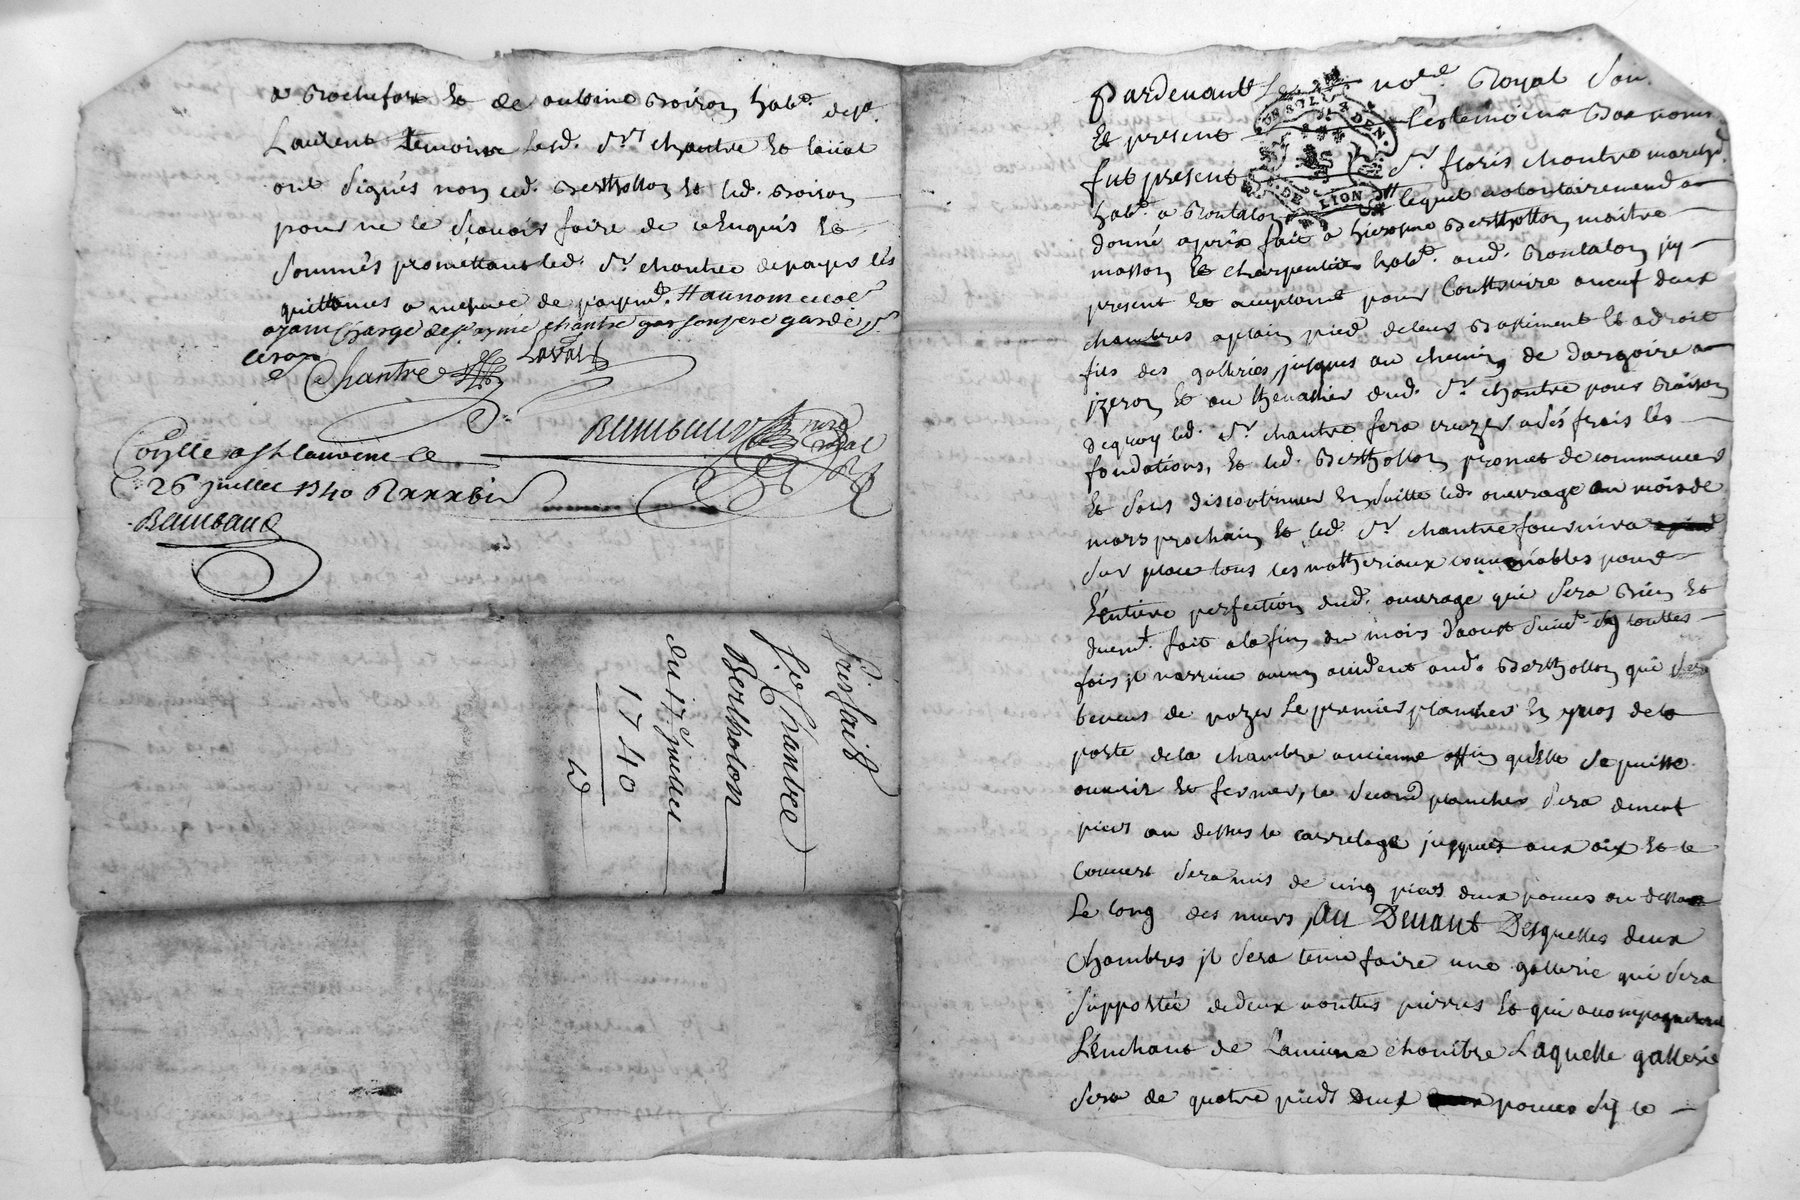 a Rochefort et de antoine Boiron habt. dep.
Laurent temoins led. Sr. chantre et laval
ont signés non led. Bertholon et led. Boiron
pour ne le scavoir faire de ce enquis et
sommés promettant led. Sr. chantre de payer les
quittances a mesure de payemt. # au nom et comme
ayant charge de chantre garde
Chantre Laval
Rambaud nore Royal
Con.lle a St Laurent le
26 juillet 1740 R
Rambaud
Prisfait
Sr. Chantre
Bertholon
du 17e. juillet
1740
Pardevant le nore. Royal sou.
et present les temoins bas només
GEN. DE LION
fut present Sr. floris chantre marchd.
habt. a Rontalon lequel volontairement a
donné a prix fait a hierosme Bertholon maitre
masson et charpentier habt. aud. Rontalon icy
present et acceptant pour Construire a neuf deux
chambres a plain pied de leur Bastiment et a droit
fils des galleries jusques au chemin de dargoire a
jzeron et au thenaillier dud. Sr. chantre pour Raison
de quoy led. Sr. chantre fera creuzer a ses frais les
fondations, et led. Bertholon promet de commancer
et sans discontinuer en suitte led. ouvrage au mois de
mars prochain et led. Sr. chantre fournira
sur place tous les matheriaux convenables pour
l'entiere perfection dud. ouvrage qui sera Bien et
duemt. fait a la fin du mois d'aoust suivt. sy touttes
fois jl n'arrive aucun accident aud. Bertholon qui sera
tenu de pozer le premier plancher de la
porte de la chambre ancienne affin qu'elle se puisse
ouvrir et fermer, le second plancher sera de neuf
pieds au dessus le carrelage jusques aux aix et le
couvert sera mis de cinq pieds deux pouces au dessus
le long des murs, Au Devant Desquelles deux
chambres jl sera tenu faire une gallerie qui sera
supportée de deux voultes pierres et qui accompagnera
l'enchant de l'ancienne chambre Laquelle gallerie
sera de quatre pieds deux pouces sy le